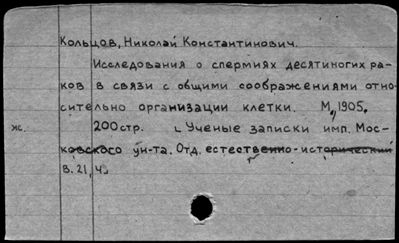 Кольцов, Николай Константинович.
Исследования о спермиях десятиногих ра-
ков в связи с общими соображениями отно-
сительно организации клетки. М., 1905.
ж. 200 стр. Ученые записки имп. Мос-
ковского ун-та. Отд. естественно-исторический
В. 21, Ч.